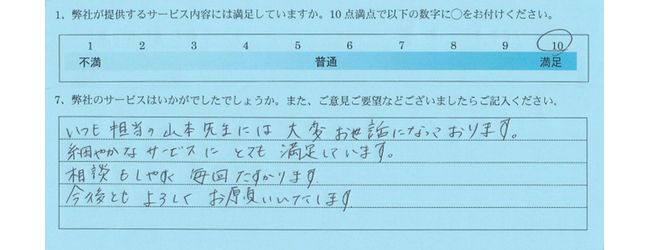 1、弊社が提供するサービス内容には満足していますか。10点満点で以下の数字に○をお付けください。
1 2 3 4 5 6 7 8 9 10
不満 普通 満足
7、弊社のサービスはいかがでしたでしょうか。また、ご意見ご要望などございましたらご記入ください。
いつも担当の山本先生には大変お世話になっております。
細やかなサービスにとても満足しています。
相談もしやすく毎回たすかります
今後ともよろしくお願いいたします